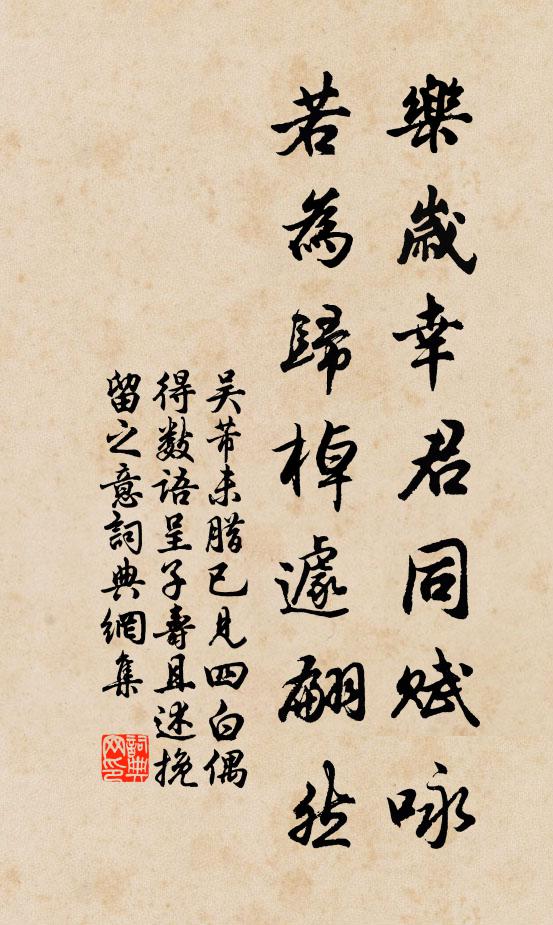 樂歲幸君同賦咏
若為歸棹遽翩然
吴芾未腊已見四白偶
得数語呈子壽且述挽
留之意詞典網集
詞典网印